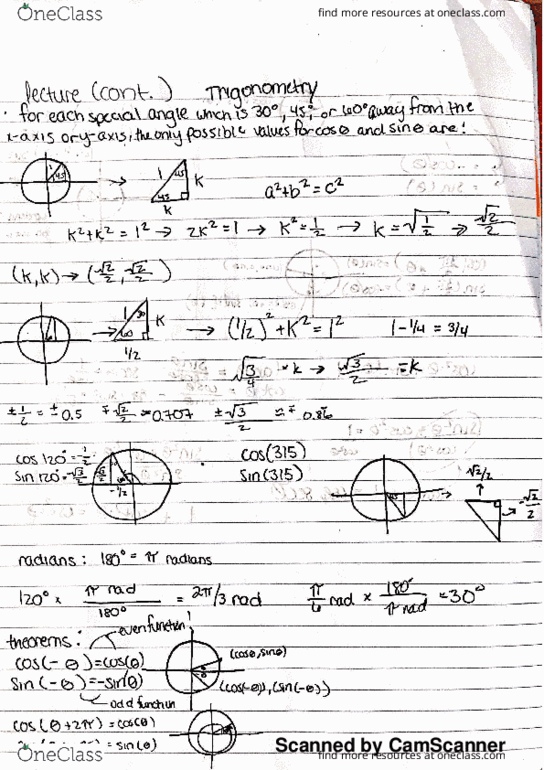 OneClass
find more resources at oneclass.com
lecture (cont.) Trigonometry
· for each special angle which is 30°, 45°, or 60° away from the
x-axis or y-axis, the only possible values for cosθ and sinθ are:
45 → 1 45 45 K K a²+b²=c²
K²+K²=1² → 2K²=1 → K²=1/2 → K=√1/2 ⇒ √2/2
(K,K) → (√2/2, √2/2)
→ 1 30 60 K 1/2 → (1/2)²+K²=1² 1-1/4=3/4
=√3/4 = K → √3/2 = K
±1/2 = ±0.5 ∓√2/2 ≈0.707 ±√3/2 ≈∓ 0.86
cos 120°=-1/2 cos(315)
sin 120°=√3/2 -1/2 sin(315) √2/2 → -√2/2
radians: 180° = π radians
120° × π rad/180° = 2π/3 rad π/6 rad × 180°/π rad = 30°
theorems: even function!
cos(-θ)=cos(θ) (cosθ, sinθ)
sin(-θ)=-sin(θ) (cos(-θ), (sin(-θ))
odd function
cos(θ+2π)=cos(θ)
= sin(θ)
Scanned by CamScanner
OneClass
find more resources at oneclass.com